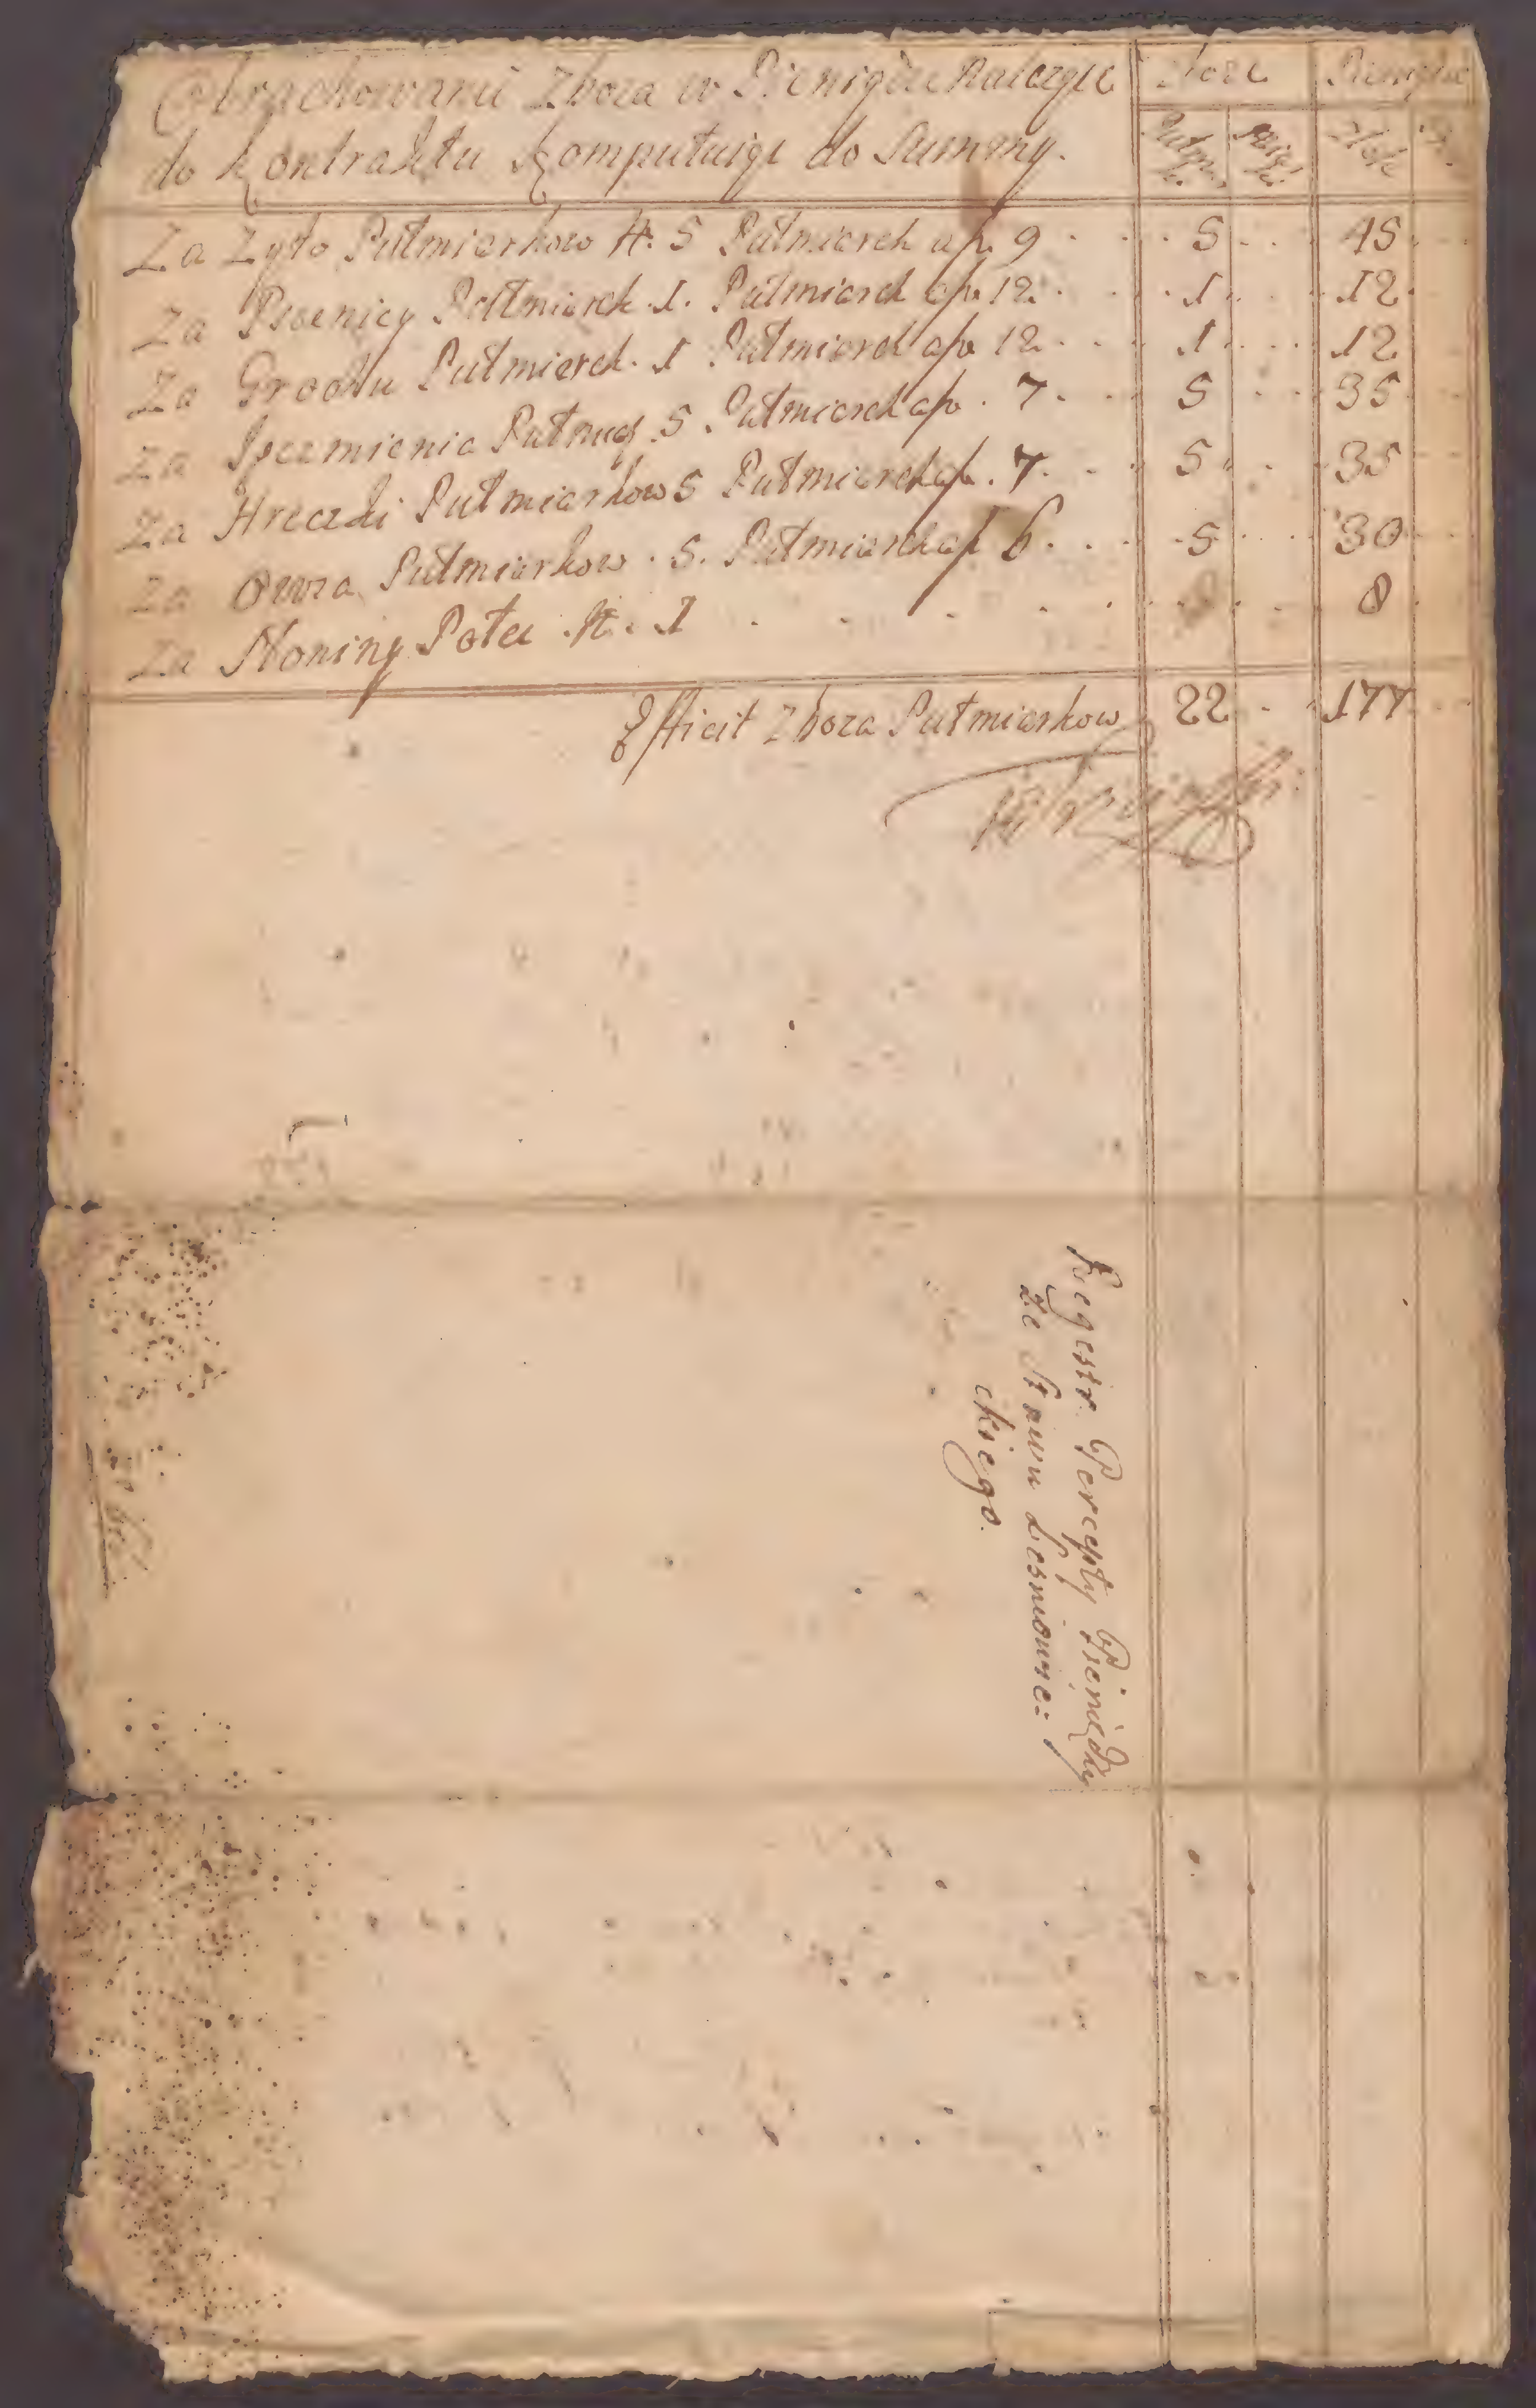 Obrachowanii Zboza w Pieniądze Należące
do Kontraktu Komputuige do Summy.
Zboze Pieniądze
Putmiarki Złote
Za Zyto Putmiarkow N. 5 Putmiarek a p. 9 5 45
Za Pszenicy Putmiarek 1. Putmiarek a p. 12 1 12
Za Grochu Putmiarek 1 Putmiarek a p. 12 1 12
Za Jęczmienia Putmiar. 5 Putmiarek a p. 7 5 35
Za Hreczki Putmiarkow 5 Putmiarek a p. 7 5 35
Za Owsa Putmiarkow 5. Putmiarek a p. 6 5 30
Za Słoniny Połec N. 1 8
Efficit Zboza Putmiarkow 22 177
Regestr Percepty Pieniędzy
ze Stawu Lesniowie=
ckiego.